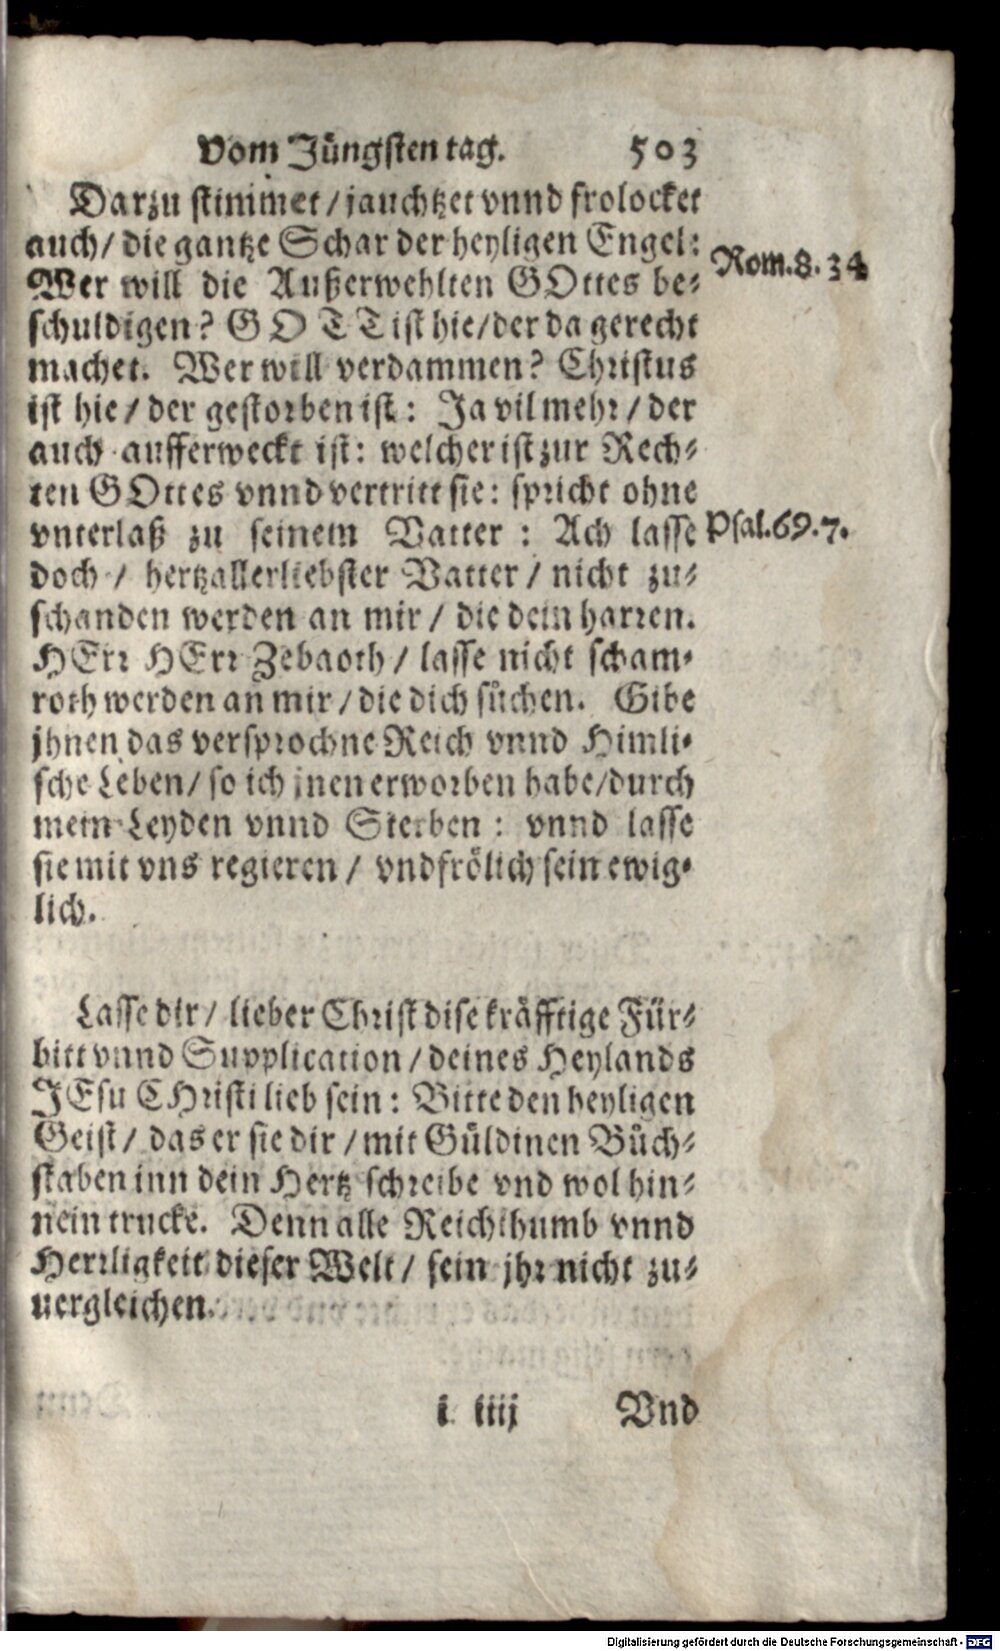 Vom Jüngsten tag. 503
Darzu stimmet / jauchtzet vnnd frolocket
auch / die gantze Schar der heyligen Engel:
Rom. 8. 34
Wer will die Außerwehlten GOttes be-
schuldigen? GOTT ist hie / der da gerecht
machet. Wer will verdammen? Christus
ist hie / der gestorben ist: Ja vil mehr / der
auch aufferweckt ist: welcher ist zur Rech-
ten GOttes vnnd vertritt sie: spricht ohne
vnterlaß zu seinem Vatter: Ach lasse
Psal. 69. 7.
doch / hertzallerliebster Vatter / nicht zu-
schanden werden an mir / die dein harren.
HErr HErr Zebaoth / lasse nicht scham-
roth werden an mir / die dich sůchen. Gibe
jhnen das versprochne Reich vnnd Himli-
sche Leben / so ich jnen erworben habe / durch
mein Leyden vnnd Sterben: vnnd lasse
sie mit vns regieren / vnd frölich sein ewig-
lich.
Lasse dir / lieber Christ dise kräfftige Für-
bitt vnnd Supplication / deines Heylands
JEsu CHristi lieb sein: Bitte den heyligen
Geist / das er sie dir / mit Güldinen Bůch-
staben inn dein Hertz schreibe vnd wol hin-
nein trucke. Denn alle Reichthumb vnnd
Herrligkeit dieser Welt / sein jhr nicht zu-
uergleichen.
i iiij Vnd
Digitalisierung gefördert durch die Deutsche Forschungsgemeinschaft - DFG